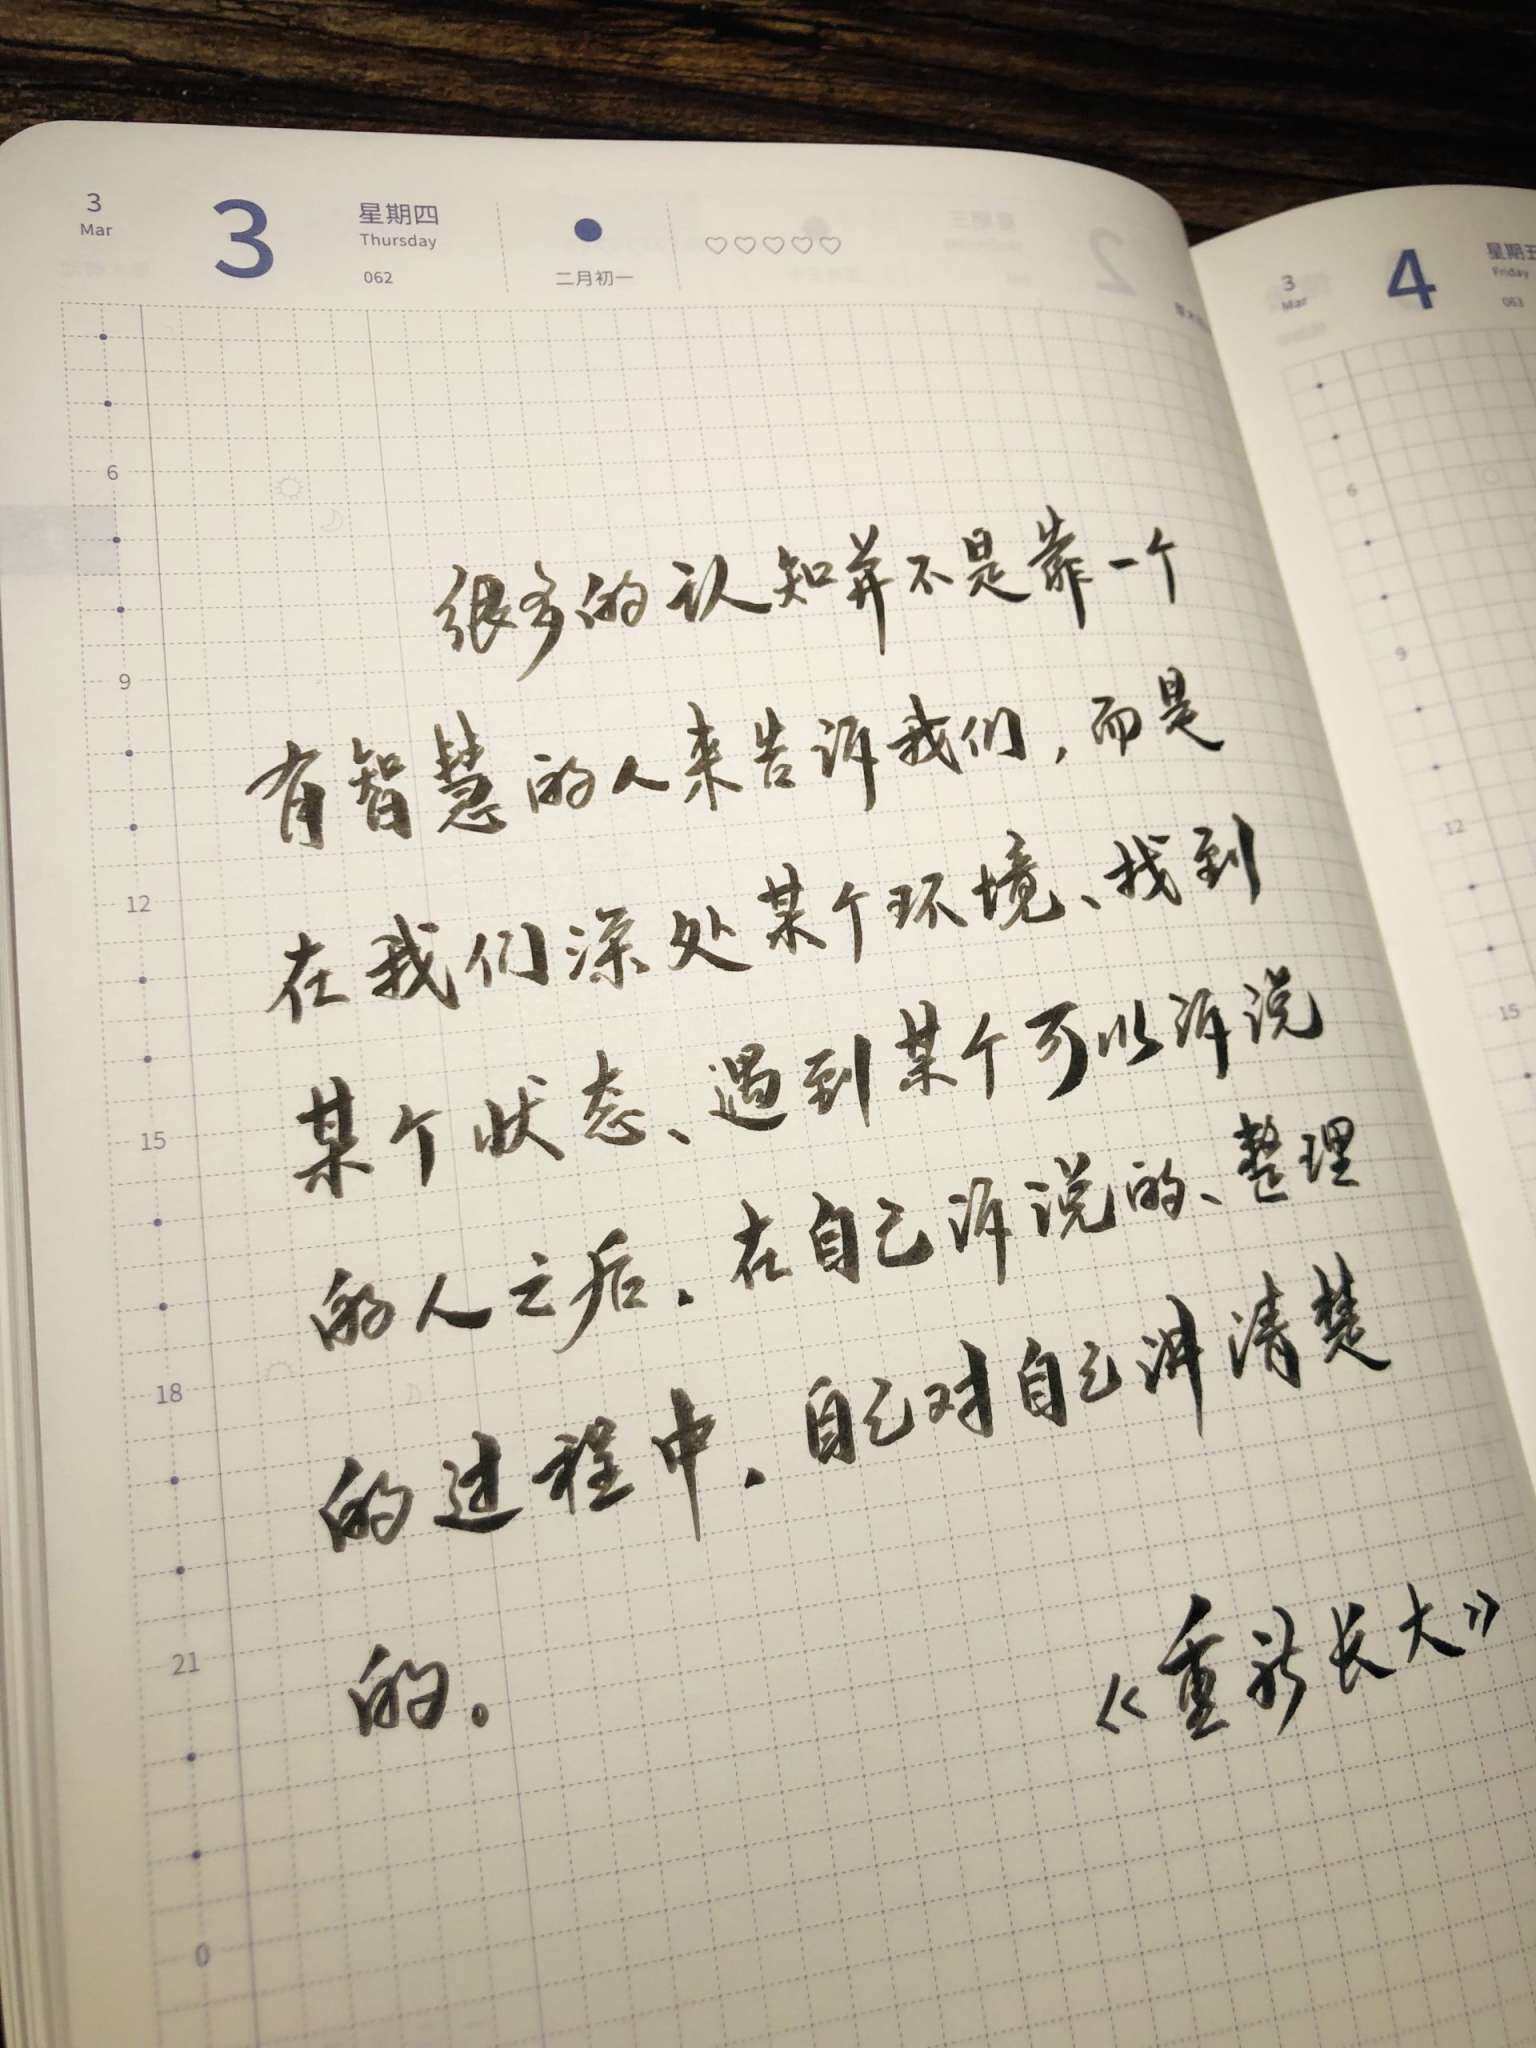 3
Mar
3
星期四
Thursday
062
二月初一
3
Mar
4
星期五
Friday
063
很多的认知并不是靠一个
有智慧的人来告诉我们，而是
在我们深处某个环境、找到
某个状态、遇到某个可以诉说
的人之后，在自己诉说的、整理
的过程中，自己对自己讲清楚
的。
《重新长大》
6
9
12
15
18
21
0
6
9
12
15